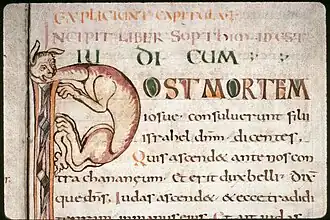 EXPLICIUNT CAPITULA
INCIPIT LIBER SOPTHIM IDEST
IUDICUM
POST MORTEM
iosue consuluerunt filii
israhel dnm dicentes
Quis ascendet ante nos con
tra chananeum et erit dux belli dix
itque dns Iudas ascendet ecce tradidi